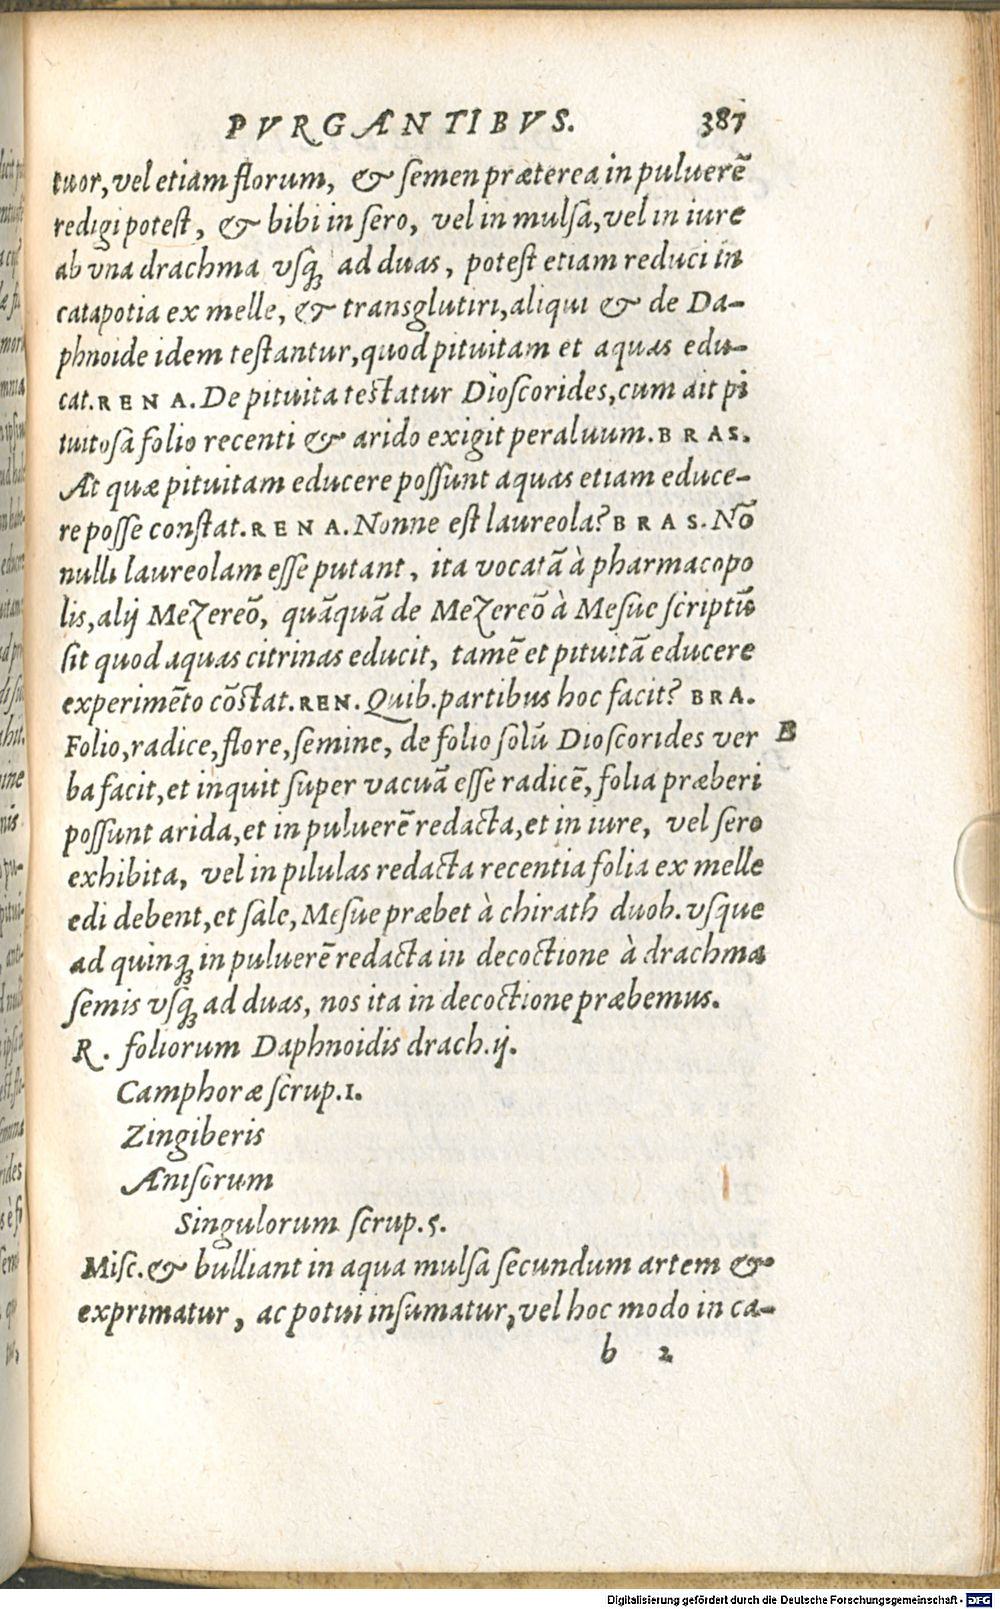 PVRGANTIBVS. 387
tuor, vel etiam florum, & semen præterea in puluerē
redigi potest, & bibi in sero, vel in mulsa, vel in iure
ab vna drachma vsq; ad duas, potest etiam reduci in
catapotia ex melle, & transglutiri, aliqui & de Da-
phnoide idem testantur, quod pituitam et aquas edu-
cat. RENA. De pituita testatur Dioscorides, cum ait pi
tuitosa folio recenti & arido exigit per aluum. BRAS.
At quæ pituitam educere possunt aquas etiam educe-
re posse constat. RENA. Nonne est laureola? BRAS. Nō
nulli laureolam esse putant, ita vocatā à pharmacopo
lis, alij Mezereō, quāquā de Mezereō à Mesue scriptū
sit quod aquas citrinas educit, tamē et pituitā educere
experimēto cōstat. REN. Quib. partibus hoc facit? BRA.
Folio, radice, flore, semine, de folio solū Dioscorides ver B
ba facit, et inquit super vacuā esse radicē, folia præberi
possunt arida, et in puluerē redacta, et in iure, vel sero
exhibita, vel in pilulas redacta recentia folia ex melle
edi debent, et sale, Mesue præbet à chirath duob. vsque
ad quinq; in puluerē redacta in decoctione à drachma
semis vsq; ad duas, nos ita in decoctione præbemus.
R. foliorum Daphnoidis drach. ij.
Camphoræ scrup. 1.
Zingiberis
Anisorum
Singulorum scrup. 5.
Misc. & bulliant in aqua mulsa secundum artem &
exprimatur, ac potui insumatur, vel hoc modo in ca-
b 2
Digitalisierung gefördert durch die Deutsche Forschungsgemeinschaft - DFG